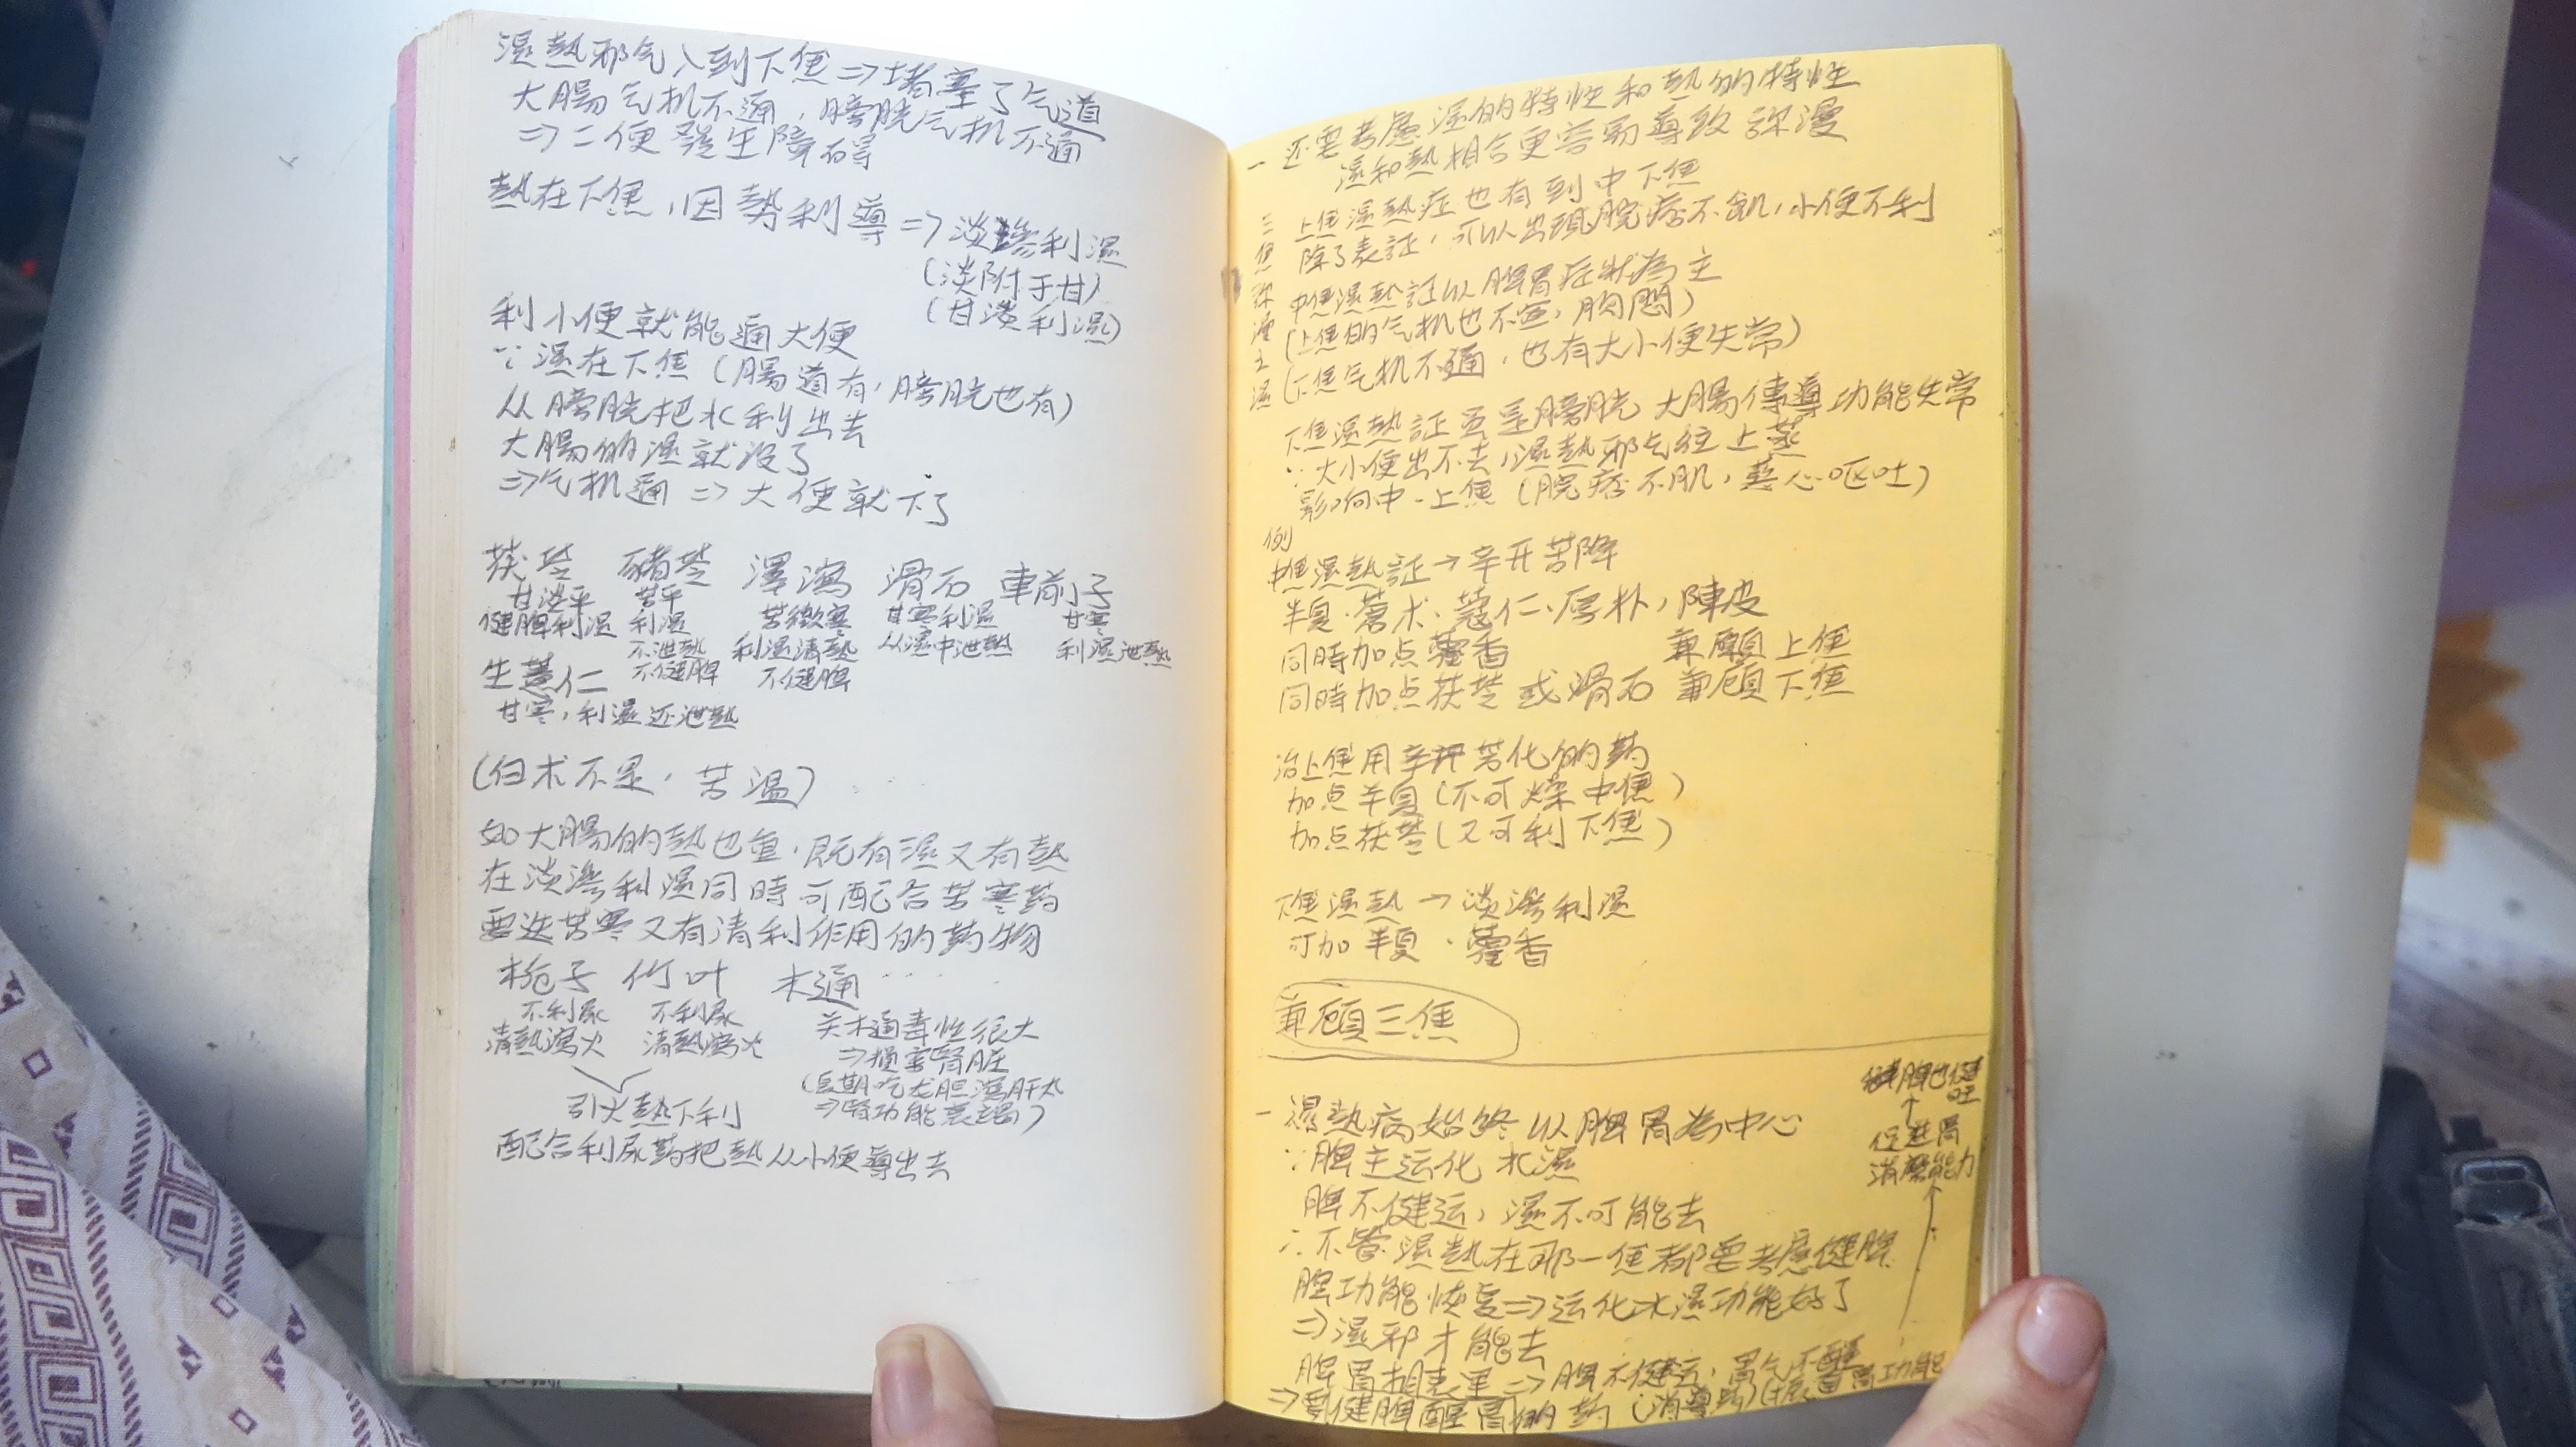 濕熱邪气入到下焦⇒堵塞了气道
大腸气机不通,膀胱气机不通
⇒二便發生障碍
熱在下焦,因勢利導⇒淡滲利濕
(淡附于甘)
(甘淡利濕)
利小便就能通大便
∵濕在下焦(腸道有,膀胱也有)
从膀胱把水利出去
大腸的濕就没了
⇒气机通⇒大便就下了
茯苓 豬苓 澤瀉 滑石 車前子
甘淡平 苦平 苦微寒 甘寒利濕 甘寒
健脾利濕 利濕 利濕清熱 从濕中泄熱 利濕泄熱
不泄熱 不健脾
不健脾
生薏仁
甘寒,利濕还泄熱
(白术不是,苦温)
如大腸的熱也重,既有濕又有熱
在淡滲利濕同時可配合苦寒药
要选苦寒又有清利作用的药物
栀子 竹叶 木通...
不利尿 不利尿 关木通毒性很大
清熱瀉火 清熱瀉火 ⇒損害腎脏
(長期吃龙胆瀉肝丸
⇒腎功能衰竭)
引火熱下利
配合利尿药把熱从小便導出去
- 还要考慮濕的特性和熱的特性
濕和熱相合更容易導致弥漫
三焦弥漫之濕
上焦濕熱症也有到中下焦
除了表証,可以出現脘痞不飢,小便不利
中焦濕熱証以脾胃症狀為主
(上焦的气机也不宣,胸悶)
(下焦气机不通,也有大小便失常)
下焦濕熱証更是膀胱大腸傳導功能失常
∵大小便出不去,濕熱邪气往上蒸
影响中、上焦(脘痞不肌,恶心呕吐)
例
中焦濕熱証→辛开苦降
半夏、蒼术、蔻仁、厚朴,陳皮
同時加点藿香 兼顧上焦
同時加点茯苓或滑石 兼顧下焦
治上焦用辛开芳化的药
加点半夏(不可燥中焦)
加点茯苓(又可利下焦)
下焦濕熱→淡滲利濕
可加半夏、藿香
兼顧三焦
- 濕熱病始終以脾胃為中心
∵脾主运化水濕
脾不健运,濕不可能去
∴不管濕熱在那一焦都要考慮健脾
脾功能恢复⇒运化水濕功能好了
⇒濕邪才能去
脾胃相表里⇒脾不健运,胃气不醒
⇒要健脾醒胃的药(消導药)
健脾也健旺
↑
促進胃
消磨能力
↑